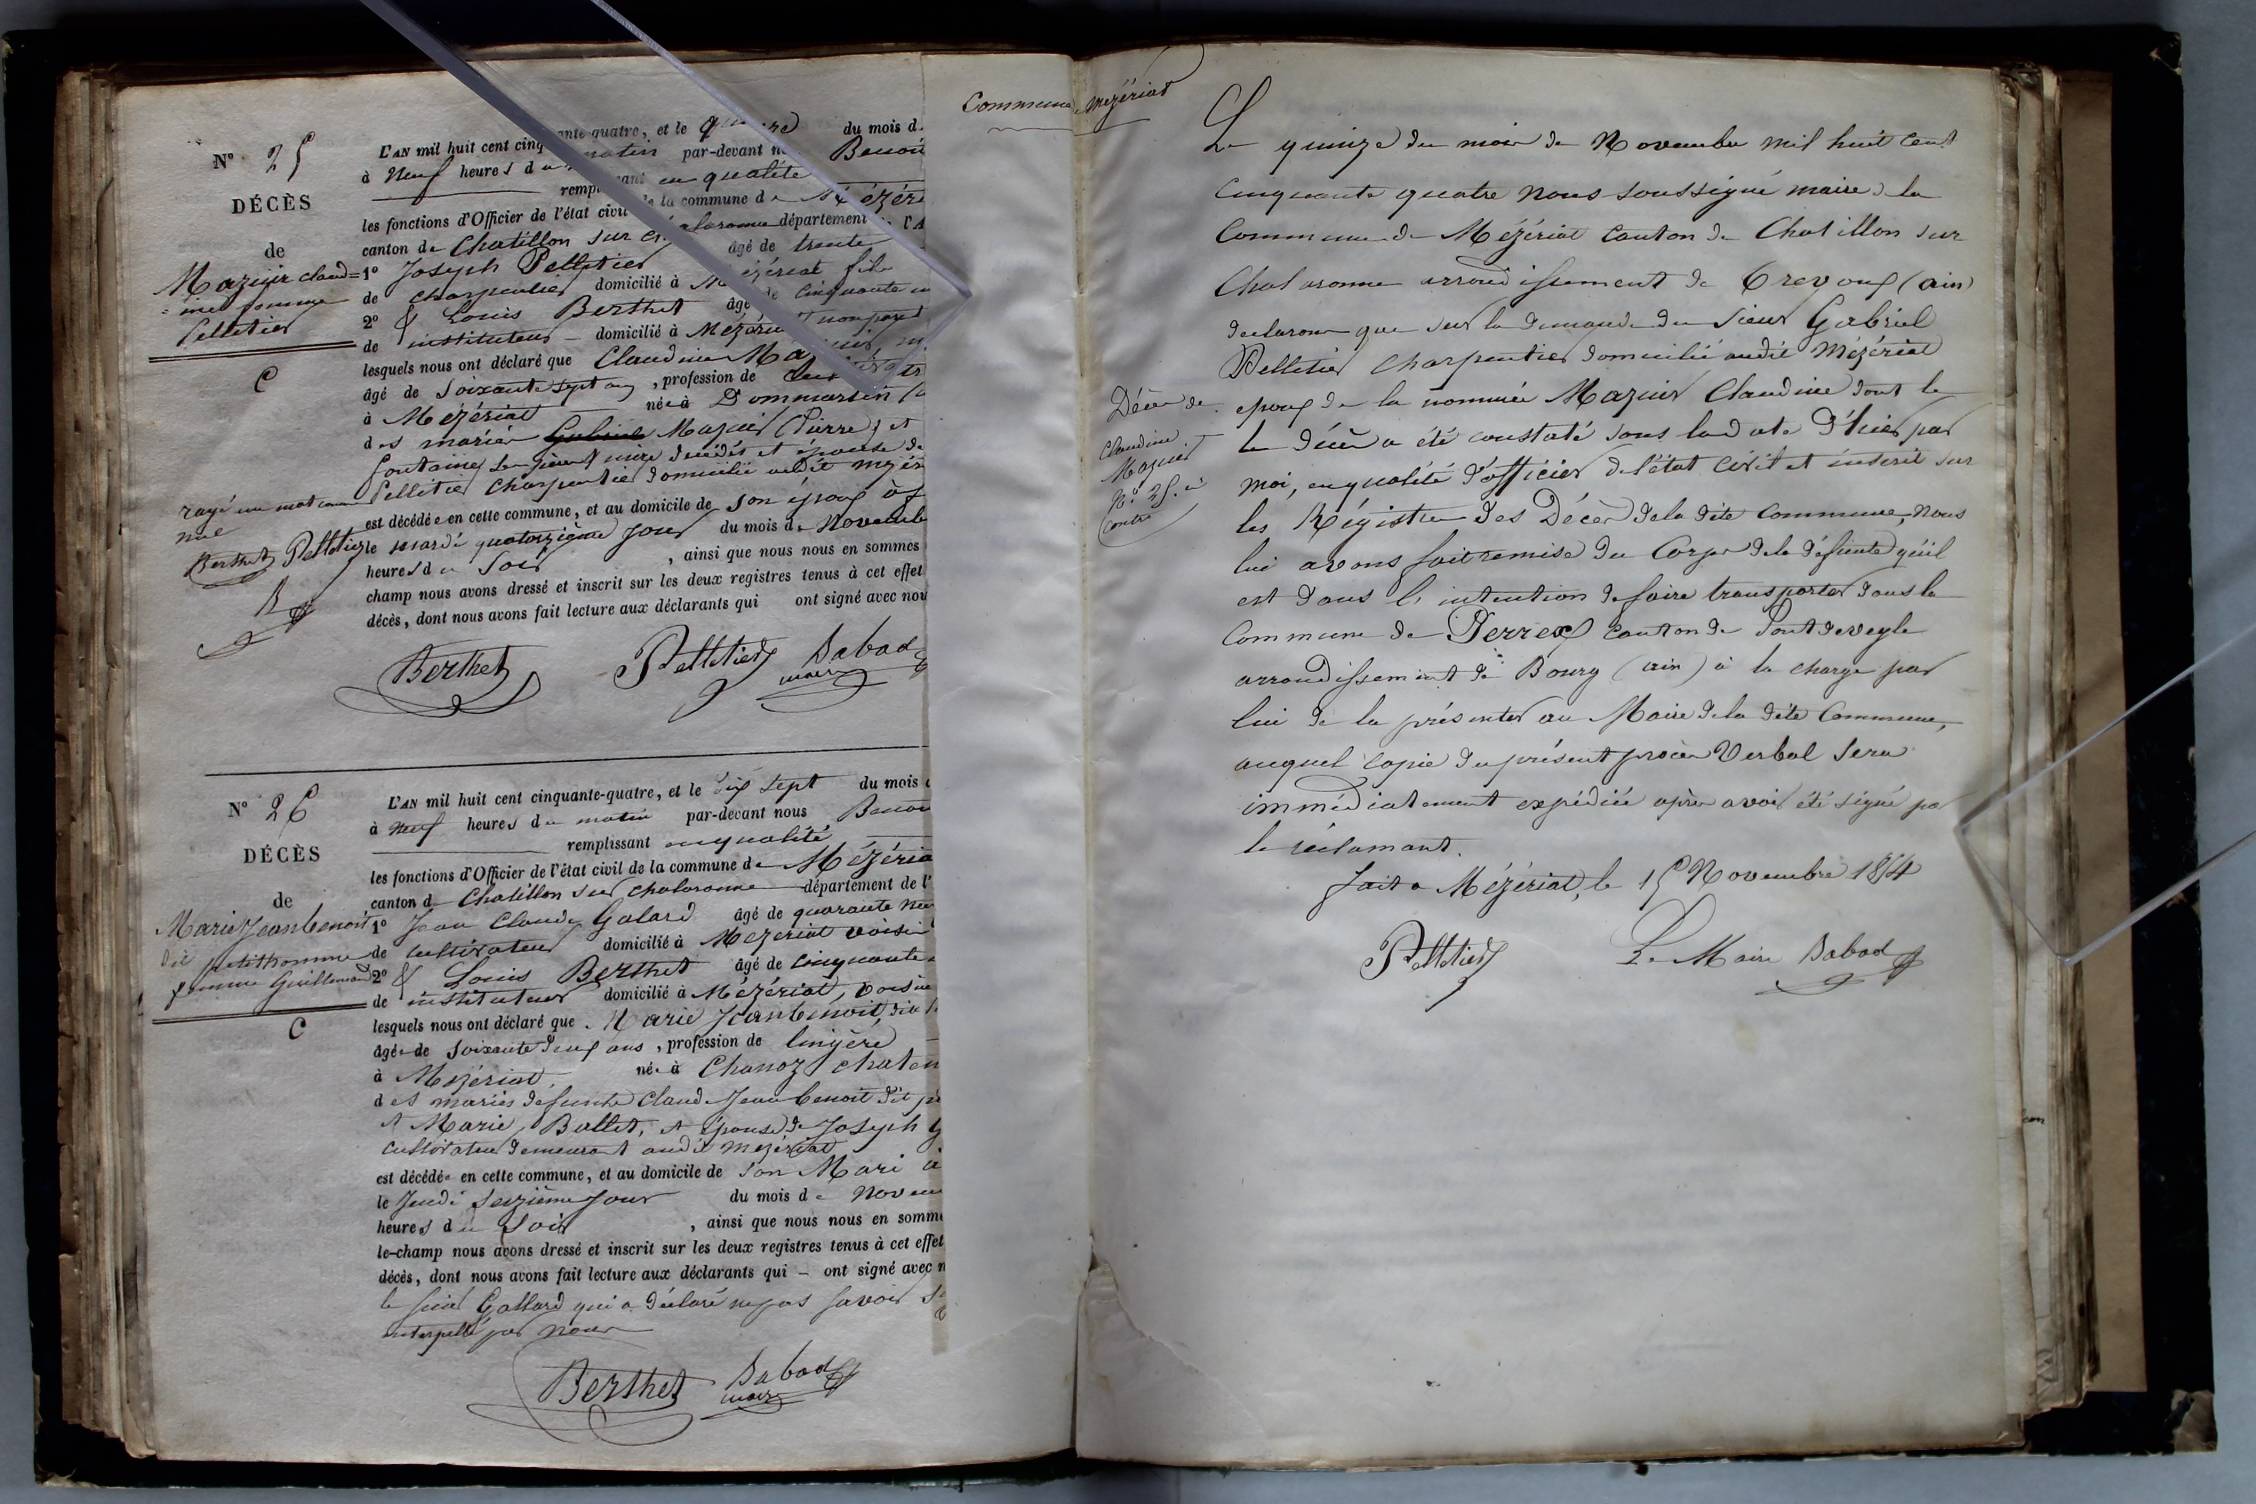 N° 25
DÉCÈS
de
Mazuir claud=
=ine femme
Pelletier
C
L'AN mil huit cent cinq ante quatre, et le du mois d
à Neuf heures du matin par-devant n Benoi
rempl ant en qualité
les fonctions d'Officier de l'état civil de la commune de Mézéri
canton de Chatillon sur ch alaronne département l'A
1° Joseph Pelletier âgé de trente
de charpentier domicilié à M ézériat fils
2° & Louis Berthet âgé de cinquante
de instituteur domicilié à Mézériat non parent
lesquels nous ont déclaré que Claudine Ma
âgé de soixante sept ans, profession de
à Mézériat née à Dommartin
des mariés Gabriel Mazuir (Pierre) et
fontaine, les père et mère décédés et épouse de
Pelletier charpentier domicilié audit mézér
rayé un mot comme
nul
Berthet Pelletier
B
est décédée en cette commune, et au domicile de son époux à
le mardi quatorzième jour du mois de Novemb
heures du Soir, ainsi que nous nous en sommes
champ nous avons dressé et inscrit sur les deux registres tenus à cet effet
décès, dont nous avons fait lecture aux déclarants qui ont signé avec nou
Berthet Pelletier Dabad
maire
N° 26
DÉCÈS
de
Marie Jeanbenoit
dit petithomme
femme Guillemaud
C
L'AN mil huit cent cinquante-quatre, et le dix sept du mois
à Neuf heures du matin par-devant nous Benoi
remplissant en qualité
les fonctions d'Officier de l'état civil de la commune de Mézéria
canton de Chatillon sur chalaronne département de l'
1° Jean Claude Galard âgé de quarante neu
de cultivateur domicilié à Mézériat voisin
2° & Louis Berthet âgé de cinquante
de instituteur domicilié à Mézériat, voisin
lesquels nous ont déclaré que Marie Jeanbenoit, dite
âgée de soixante deux ans, profession de lingère
à Mézériat, née à Chanoz chaten
des mariés defunts Claude Jeanbenoit dit pe
et Marie Ballet, et épouse de Joseph G
cultivateur demeurant audit mézériat
est décédée en cette commune, et au domicile de son Mari à
le Jeudi seizième jour du mois de Novem
heures du Soir, ainsi que nous nous en somme
le-champ nous avons dressé et inscrit sur les deux registres tenus à cet effet
décès, dont nous avons fait lecture aux déclarants qui – ont signé avec n
le sieur Gallard qui a déclaré ne pas savoir
interpellé par nous
Berthet Dabad
maire
Commune Mézériat
Décès de
Claudine
Mazuir
N° 25. ci
contre
Le quinze du mois de Novembre mil huit cent
cinquante quatre nous soussigné maire de la
Commune de Mézériat canton de Chatillon sur
Chalaronne arrondissement de Trevoux (ain)
declarons que sur la demande du sieur Gabriel
Pelletier charpentier domicilié audit Mézériat
epoux de la nommée Mazuir Claudine dont le
le décès a été constaté sous la date d'hier, par
moi, en qualité d'officier de l'état civil et inscrit sur
les Régistres des Décès de la dite commune, nous
lui avons fait remise du Corps de la défunte qu'il
est dans l'intention de faire transporter dans la
Commune de Perrex canton de Pont de veyle
arrondissement de Bourg (ain) à la charge par
lui de la présenter au Maire de la dite Commune,
auquel copie du présent procès Verbal sera
immédiatement expédiée après avoir été signé par
le réclamant.
fait a Mézériat, le 15 Novembre 1854
Pelletier Le Maire Dabad